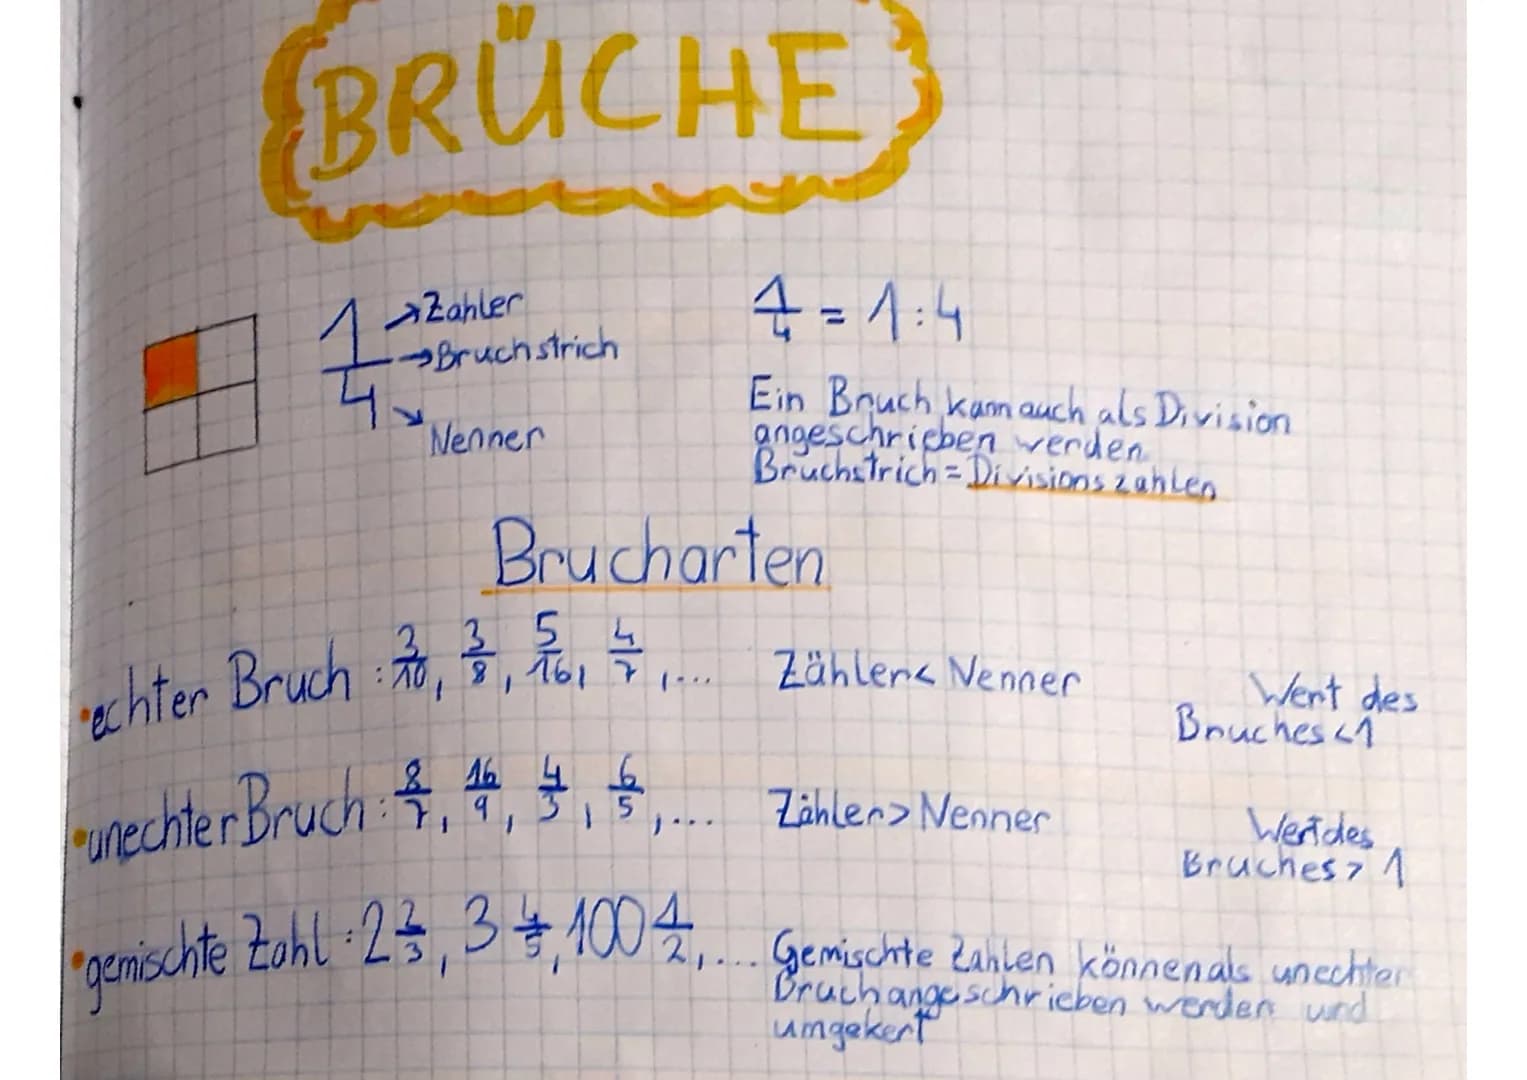 BRÜCHE
1/4 →Zahler
→Bruchstrich
Nenner
1/4 = 1:4
Ein Bruch kann auch als Division
angeschrieben werden.
Bruchstrich = Divisionszahlen
Brucharten
•echter Bruch : 3/10, 3/8, 5/16, 4/7, ... Zähler < Nenner Wert des
Bruches <1
•unechter Bruch : 8/7, 16/9, 4/3, 6/5, ... Zähler > Nenner Wert des
Bruches > 1
•gemischte Zahl : 2 2/3, 3 4/5, 100 1/2, ... Gemischte Zahlen können als unechter
Bruch angeschrieben werden und
umgekert